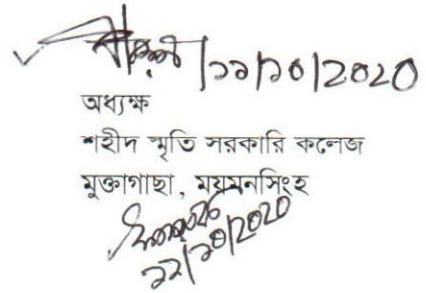 /১১/১০/2020
অধ্যক্ষ
শহীদ স্মৃতি সরকারি কলেজ
মুক্তাগাছা, ময়মনসিংহ
১১/১০/2020